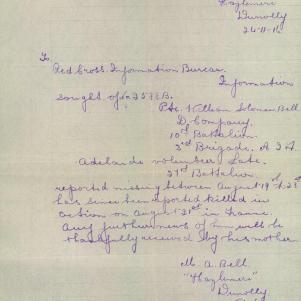 "Hazlemere"
Dunolly
26-11-16
To
Red Cross Information Bureau.
Information
sought of No 2578B.
Pte. William Stoner Bell
D. Company.
10th Battalion.
3rd Brigade. A I F
Adelaide volunteer Late.
27th Battalion.
reported missing between August 19th & 23rd
has since been reported killed in
action on August 21st in France.
Any further news of him will be
thankfully received by his mother.
M. A. Bell
"Hazlemere"
Dunolly